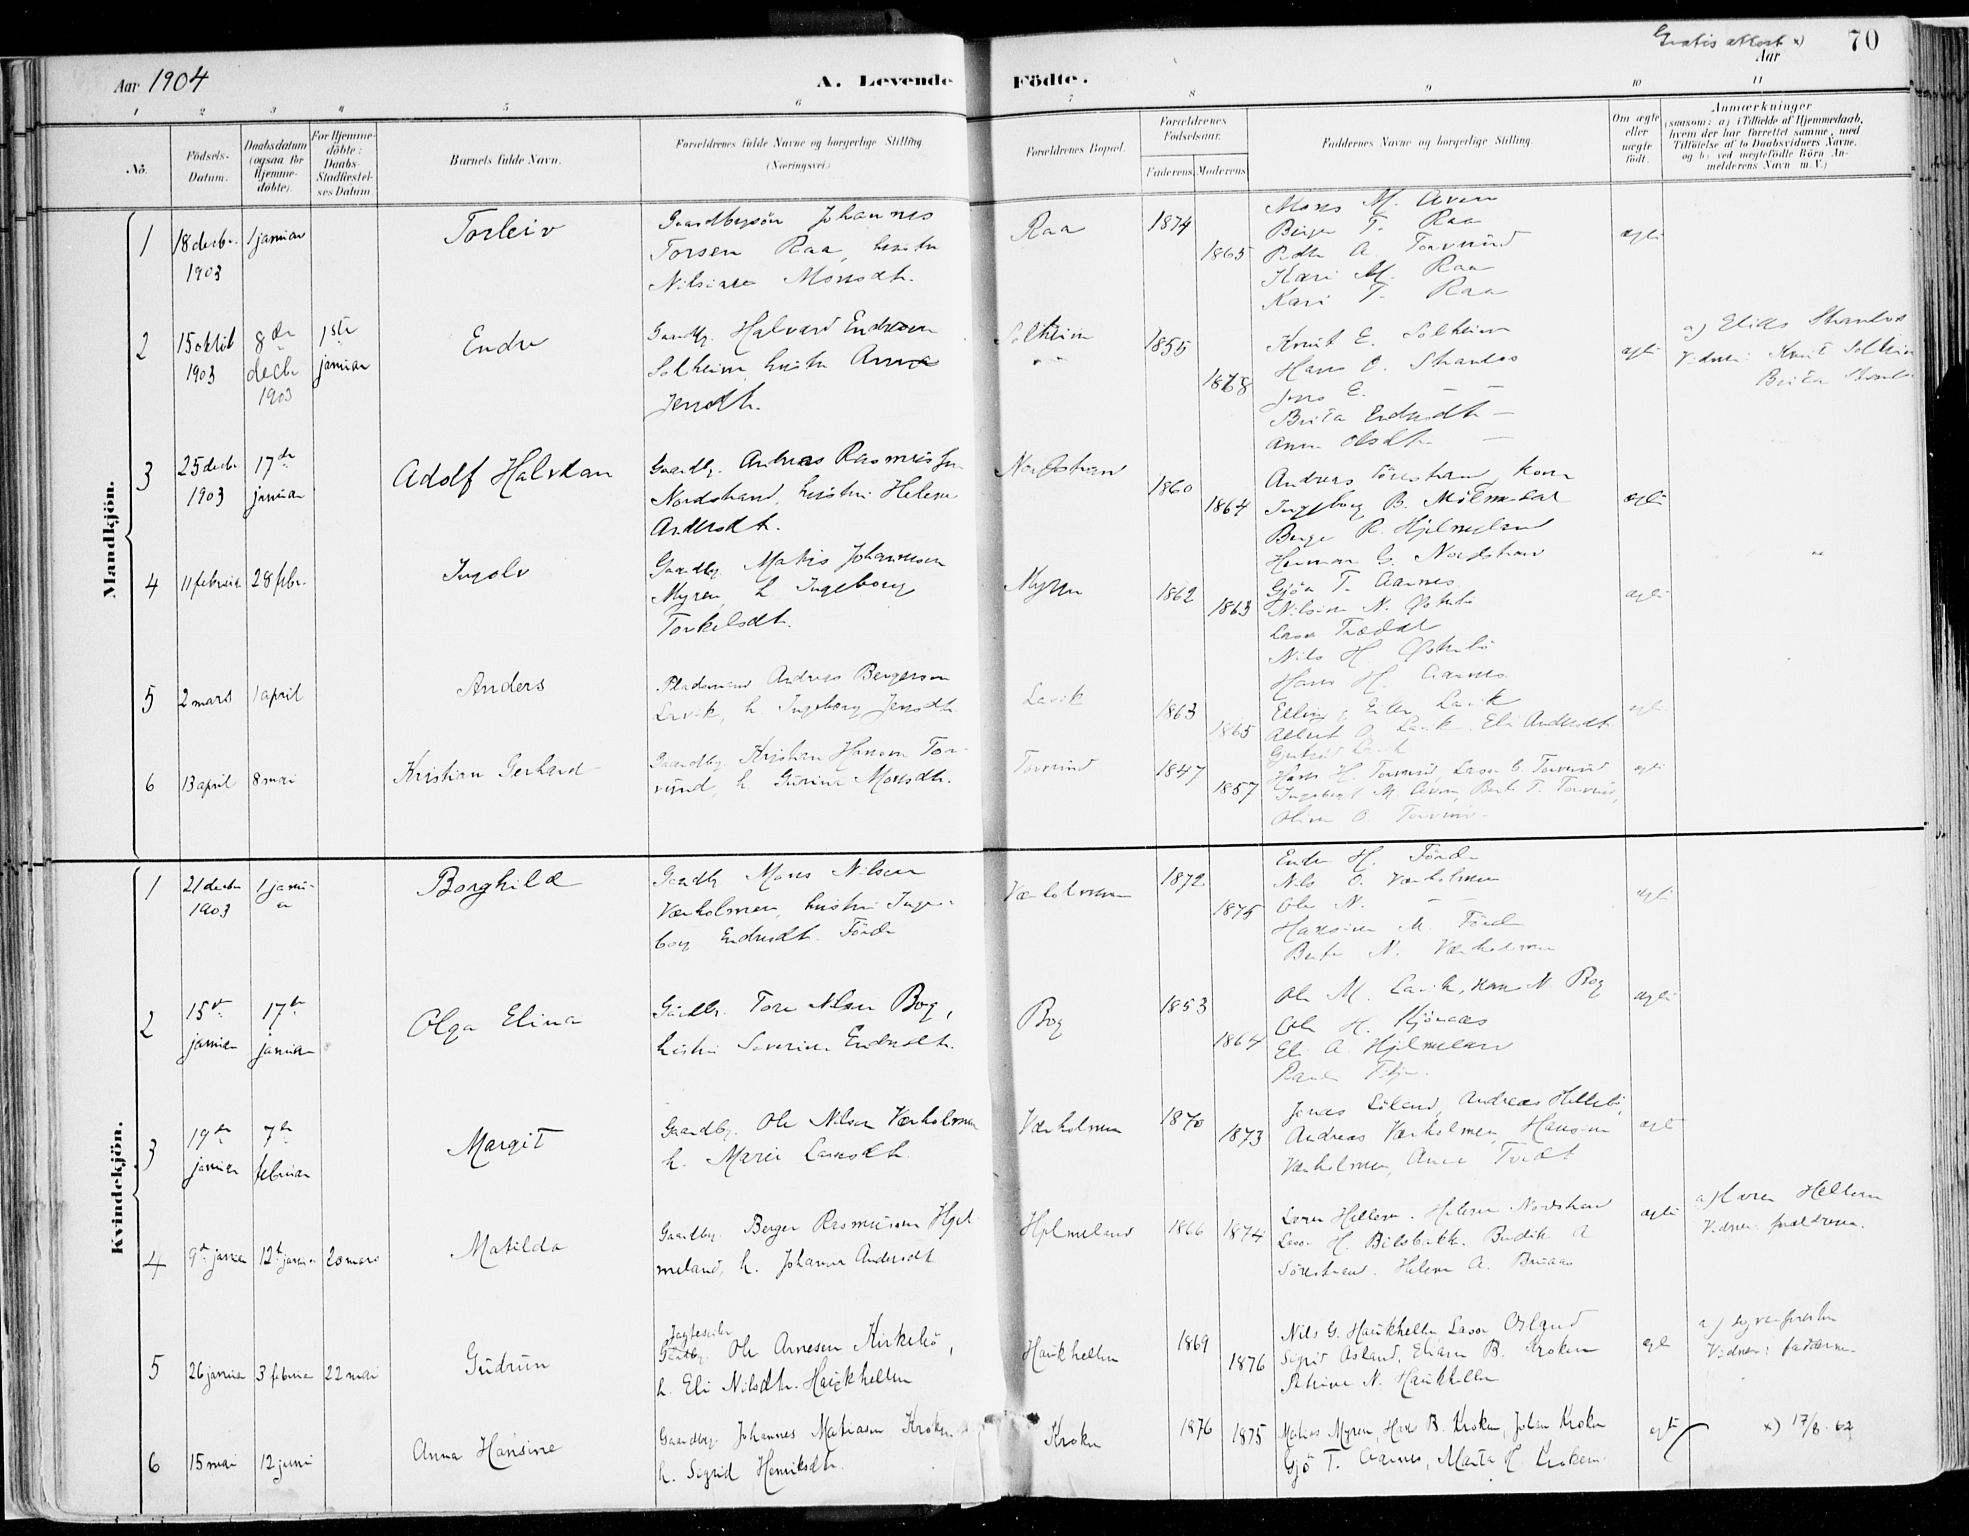 Aar 1904
A. Levende Födte.
Gratis attest x)
Aar
70
1 2 3 4 5 6 7 8 9 10 11
No.
Födsels-Datum.
Daabsdatum (ogsaa for hjemme-döbte).
For Hjemme-döbte: Daabs-Stadfæstel-ses Datum
Barnets fulde Navn.
Forældrenes fulde Navne og borgerlige Stilling (Næringsvei.)
Forældrenes Bopæl.
Forældrenes Födselsaar.
Faderens. Moderens.
Faddernes Navne og borgerlige Stilling.
Om ægte eller uægte födt.
Anmærkninger
(saasom: a) i Tilfælde af Hjemmedaab,
hvem der har forrettet samme, med
Tilföielse af to Daabsvidners Navne.
og b) ved uægtefödte Börn An-
melderens Navn m. V.)
Mandkjön.
1 18 decbr. 1903 1 januar
Torleiv
Gaardbrugsön Johannes
Torsen Raa, hustru
Nilsine Monsdtr.
Raa 1874 1865
Mons M. Aven
Birger T. Raa
A. Torvund
Kari M. Raa
Kari T. Raa
ægte
2 15 oktob 1903 8de decbr 1903 1ste januar
Endre
Gaardbr. Halvard Endresen
Solheim, hustru Anna
Jensdtr.
Solheim 1855 1868
Knut E. Solheim
Hans O. Strandos
Jens E. — —
Brita Endresdtr —
Anna Olsdtr. —
ægte
a) Elias Strandos
Vidner: Knut Solheim
Brita Strandos
3 25 decbr 1903 17de januar
Adolf Halvdan
Gaardbr. Andreas Rasmussen
Nordstrand, hustru Helene
Andersdtr.
Nordstrand 1860 1864
Andreas Sørestrand, kone
Ingeborg B.
Berge R. Hjelmeland
Herman G. Nordstrand
ægte
4 11 februar 28 febr.
Ingolv
Gaardbr. Matis Johannesen
Myren, h. Ingeborg
Torkelsdtr.
Myren 1862 1863
Gjöa T. Aarnes
Nilsine N. Østrebö
Lasse Trædal
Nils H. Østrebö
Hans H. Aarnes
ægte
5 2 mars 1 april
Anders
Pladsmand Andreas Bergesen
Lavik, h. Ingeborg Jensdtr.
Lavik 1863 1865
Elling Lavik
Albert O. Lavik, Eli Andersdtr.
Lavik
ægte
6 13 april 8 mai
Kristian Gerhard
Gaardbr. Kristian Hansen Tor-
vund, h. Gurine Monsdtr.
Torvund 1847 1857
Hans H. Torvund, Lasse C. Torvund
Ingeborg M. Aven, Berta T. Torvund,
Oline O. Torvund.
ægte
Kvindekjön.
1 21 decbr 1903 1 janu-ar
Borghild
Gaardbr. Mons Nilsen
Værholmen, hustru Inge-
borg Endresdtr. Förde
Værholmen 1872 1875
Endre H. Förde
Nils O. Værholmen
Ole N. — —
Hansine M. Förde
Berta N. Værholmen
ægte
2 15de januar 17de januar
Olga Elina
Gaardbr. Tore Nilsen Bog,
hustru Severine Endresdtr.
Bog 1853 1864
Ole M. Lavik, Hans N. Bog
Ole H.
Eli A. Hjelmeland
ægte
3 19de januar 7de februar
Margit
Gaardbr. Ole Nilsen Værholmen
h. Marie Lassesdtr.
Værholmen 1870 1873
Jonas Söland, Andreas Hellebö,
Andreas Værholmen, Hansine
Værholmen, Anna Tvedt
ægte
4 9de januar 12te januar 20 mars
Matilda
Gaardbr. Berger Rasmussen Hjel-
meland, h. Johanne Andersdtr
Hjelmeland 1866 1874
Lovise Helleren. Helene Nordstrand
Lasse H. Bolsbakk. Bendik A
Sörestrand. Helene A. Bruaas
ægte
a) Helleren
Vidner: forældrene.
5 26 januar 3 februar 22 mai
Gudrun
Jagteskibr
Gaardbr. Ole Arnesen Kirkebö,
h. Eli Nilsdtr. Haukhellen
Haukhellen 1869 1876
Nils G. Haukhellen, Lasse Osland
Sigrid Osland, Eliasen B. Kroken
Petrine N. Haukhellen
ægte
a)
Vidner: fadderne.
6 15 mai 12 juni
Anna Hansine
Gaardbr. Johannes Matiasen Kroken
h. Sigrid Henriksdtr.
Kroken 1876 1875
Matias Myren, Hans B. Kroken, Johan Kroken
Gjö T. Aarnes, Marta H. Kroken.
ægte
x) 17/8.